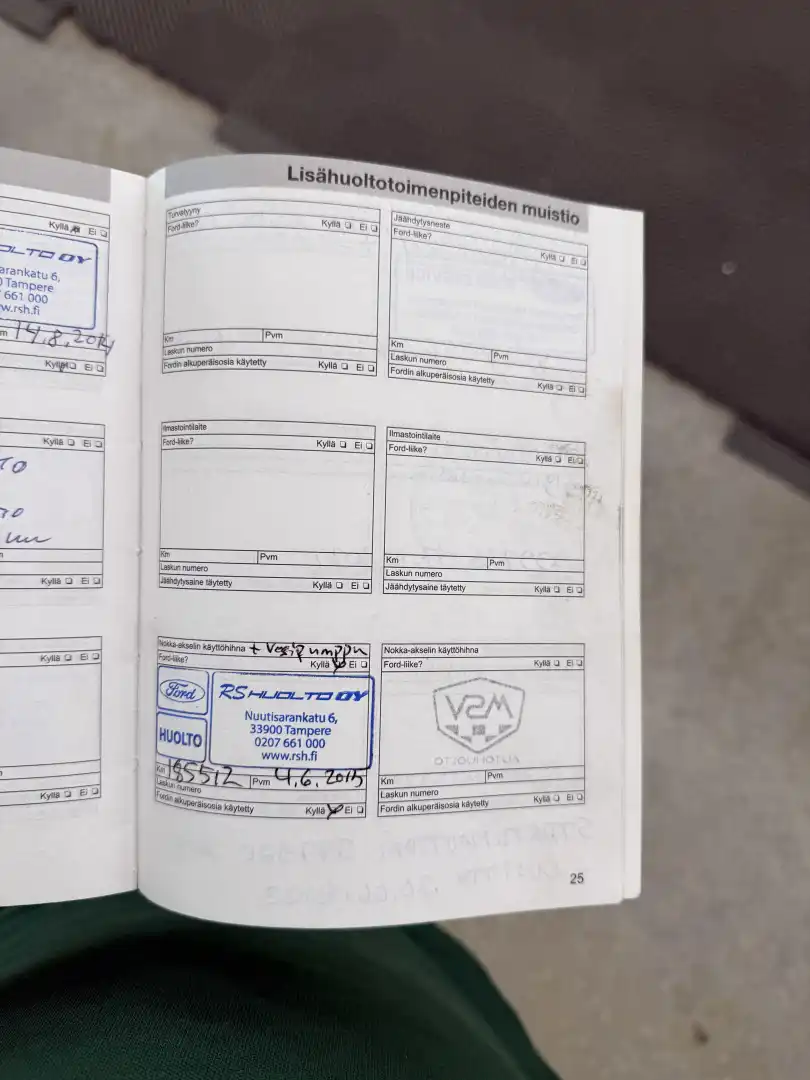 Kyllä Ei
OLTO OY
sarankatu 6,
0 Tampere
7 661 000
w.rsh.fi
m 14.8.2014
Kyllä Ei
Kyllä Ei
TO
Kyllä Ei
Kyllä Ei
Kyllä Ei
Lisähuoltotoimenpiteiden muistio
Turvatyyny
Ford-liike? Kyllä Ei
Km Pvm
Laskun numero
Fordin alkuperäisosia käytetty Kyllä Ei
Jäähdytysneste
Ford-liike?
Kyllä Ei
Km
Laskun numero Pvm
Fordin alkuperäisosia käytetty
Kyllä Ei
Ilmastointilaite
Ford-liike? Kyllä Ei
Km Pvm
Laskun numero
Jäähdytysaine täytetty Kyllä Ei
Ilmastointilaite
Ford-liike? Kyllä Ei
Km Pvm
Laskun numero
Jäähdytysaine täytetty Kyllä Ei
Nokka-akselin käyttöhihna + Vesipumppu
Ford-liike? Kyllä Ei
Ford
HUOLTO
RS HUOLTO OY
Nuutisarankatu 6,
33900 Tampere
0207 661 000
www.rsh.fi
Km 185512 Pvm 4.6.2015
Laskun numero
Fordin alkuperäisosia käytetty Kyllä Ei
Nokka-akselin käyttöhihna
Ford-liike? Kyllä Ei
MSV
AUTOHUOLTO
Km Pvm
Laskun numero
Fordin alkuperäisosia käytetty Kyllä Ei
25